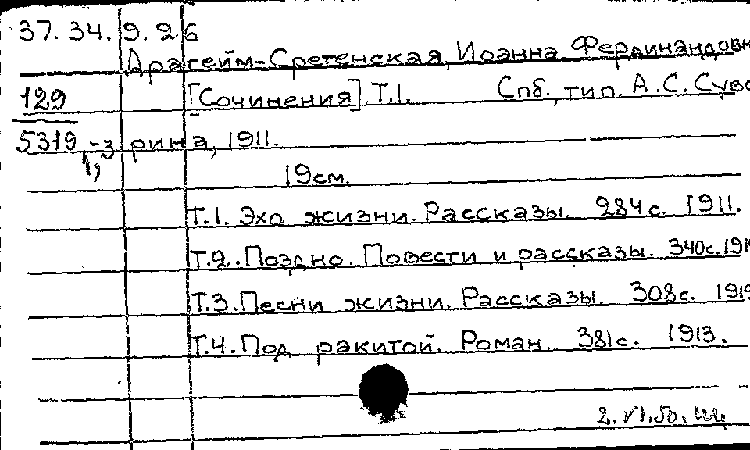 37.34.9.26
Драгейм-Сретенская, Иоанна Фердинандовн
129
[Сочинения] Т.1. Спб., тип. А.С. Суво
5319-з рина, 1911.
1,
19см.
Т.1. Эхо жизни. Рассказы. 284с. 1911.
Т.2. Поздно. Повести и рассказы. 340с.
Т.3. Песни жизни. Рассказы. 308с.
Т.4. Под ракитой. Роман. 381с. 1913.
2.VI.50.